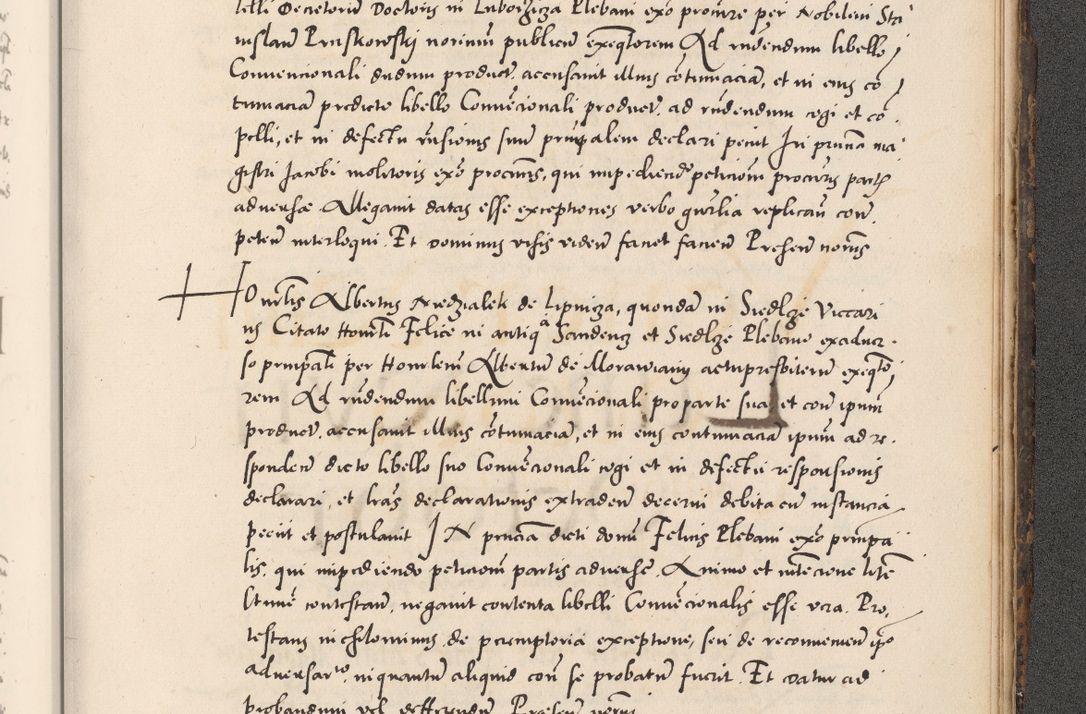 telli Decretorum Doctoris in Luborzicza Plebani ex̃o procure per Nobilem Sta
nislaũ Pruskowski norium publicũ exeqtorem Ad rñdendum libello
Convencionali dudum product. accusavit illius cõtumaciam, et in eius cõ
tumaciã predicto libello Convẽcionali product. ad rñdendum cogi et cõ
pelli, et in defectu rñsionis suũ prinpalem declari peciit In prñcia ma
gistri Jacobi molitoris ex̃o procuris, qui impediendo peticioni procuris partis
adversæ Allegavit datas esse exceptiones verbo gnrlia replicañ coñ.
peteñ interloqui. Et dominus visis videñ faciet facieñ Preseñ noris
Honrlis Albertus Niedzialek de Lipnicza, quondã in Siedlcze Viccari
us Citato Honrli Felice in antiqa Sandencz et Siedlcze Plebano ex adver
so prinpali per Honrlem Albertũ de Morawiany actu presbiterũ exeqto
rem Ad rñdendum libellum Convẽcionali pro parte sua et coñ ipum
product. accusavit illius cõtumaciam, et in eius contumaciã ipum ad re
spondeñ dicto libello suo Convẽcionali cogi et in defectu responsionis
declarari, et lras declarationis extradeñ decerni debita cũ instancia
peciit et postulavit IN prñcia dicti domi Felicis Plebani ex̃o prinpa
lis, qui impediendo peticioni partis adversæ. Animo et intẽcione litẽ
contestañ, negavit contenta libelli Convẽcionalis esse vera. Pro
testans nichilominus de peremptoria exceptione, seu de reconveniẽn ipo
adversario, in quantũ aliquid coñ se probatũ fuerit. Et datur ad
probandum vel